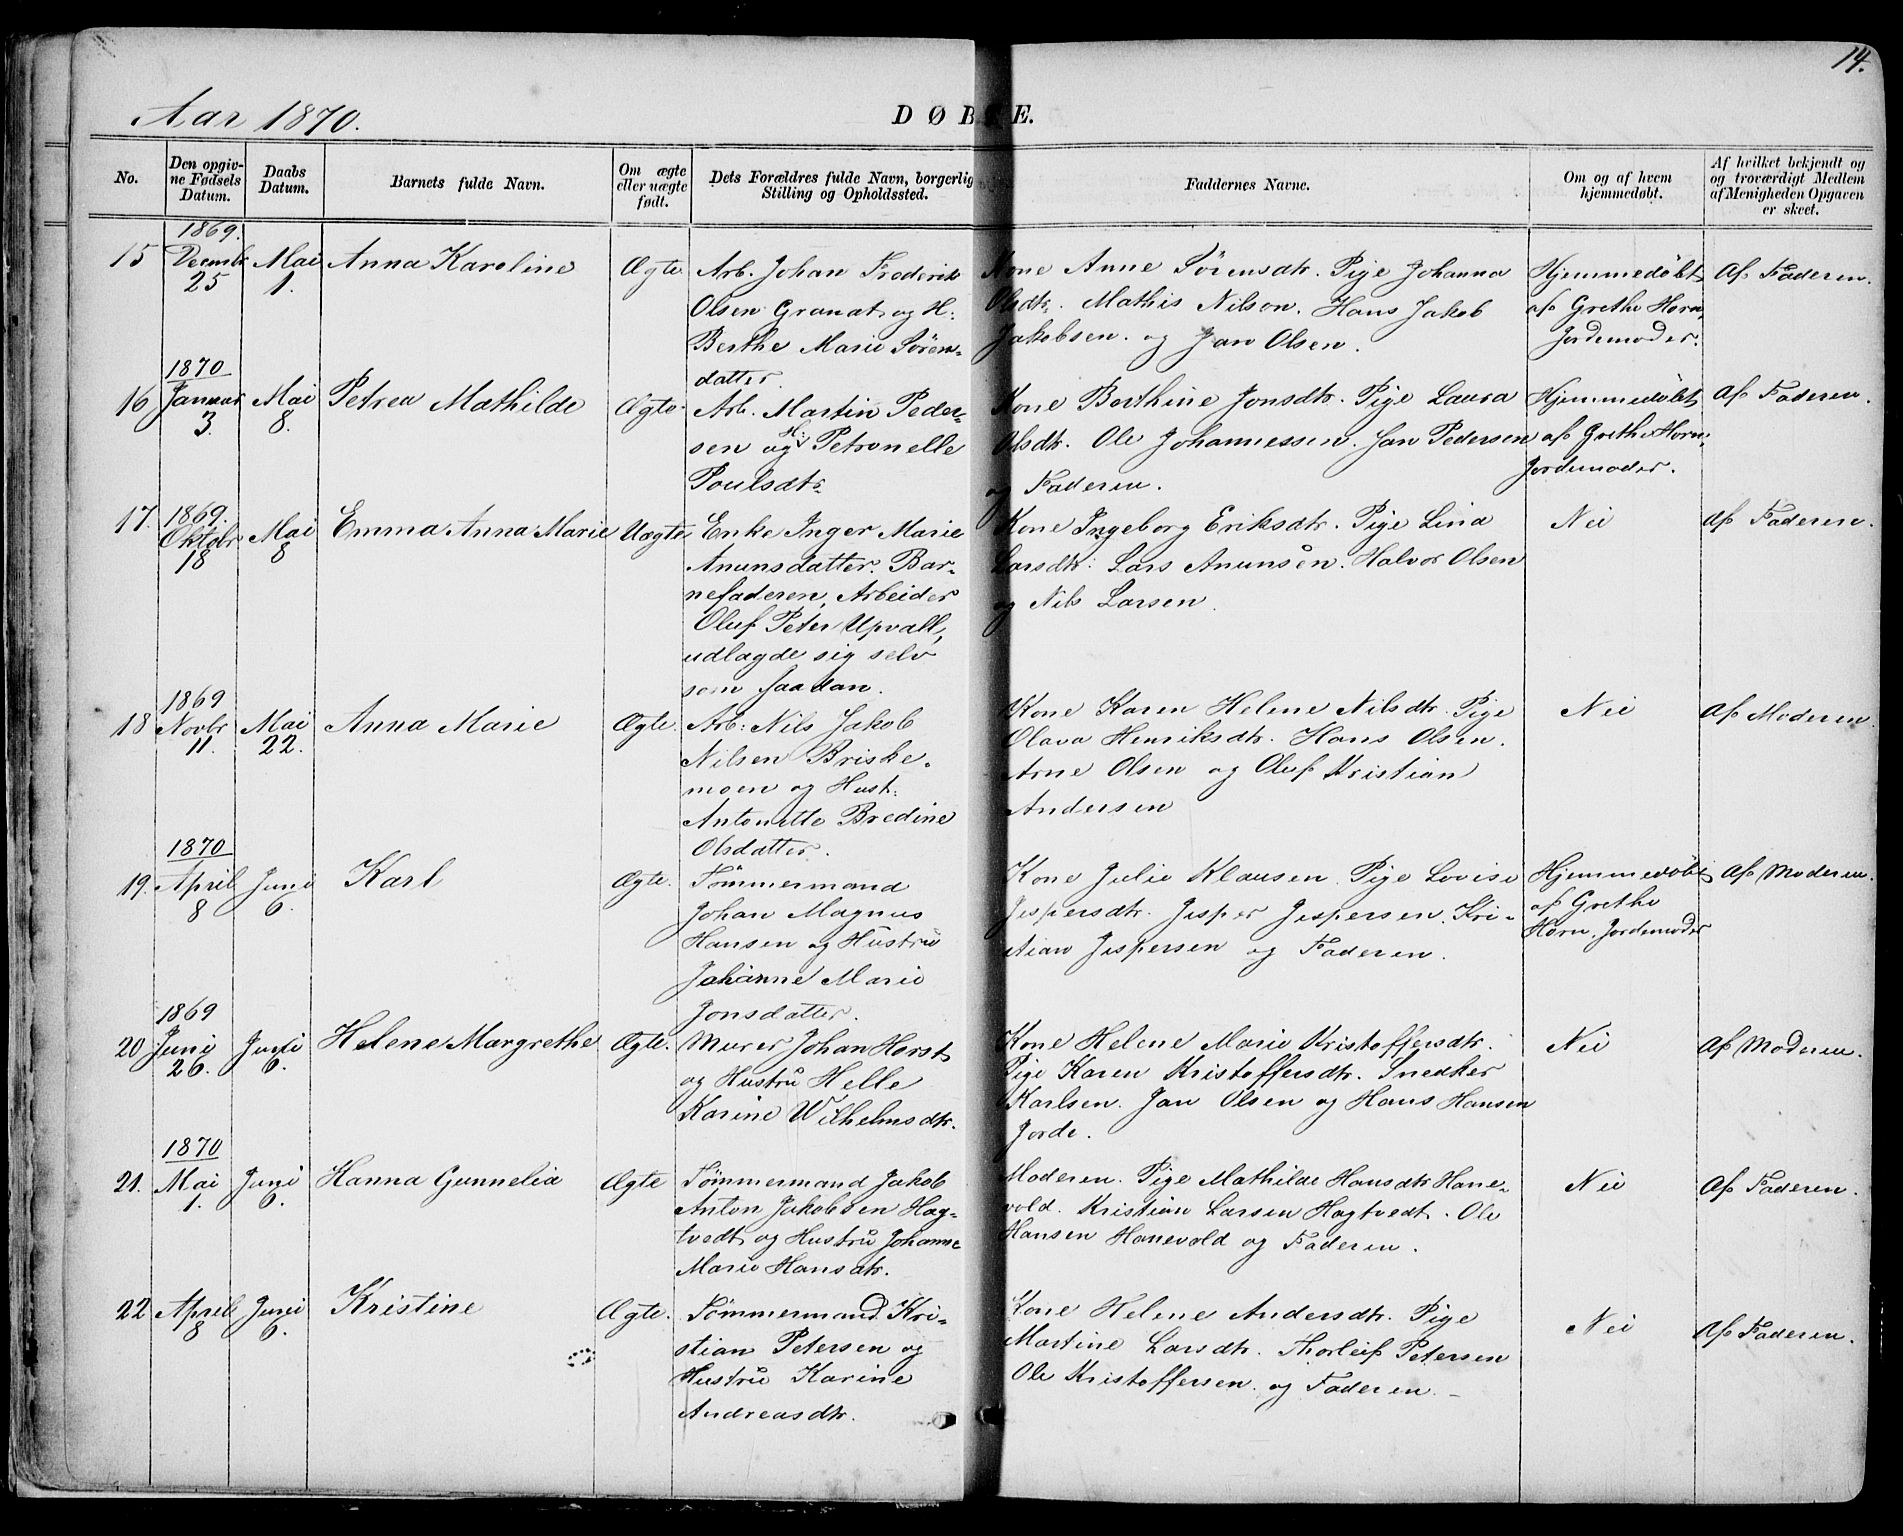 14.
Aar 1870.
DØBTE.
No.
Den opgiv-
ne Fødsels
Datum.
Daabs
Datum.
Barnets fulde Navn.
Om ægte
eller uægte
født.
Dets Forældres fulde Navn, borgerlige
Stilling og Opholdssted.
Faddernes Navne.
Om og af hvem
hjemmedøbt.
Af hvilket bekjendt og
og troværdigt Medlem
af Menigheden Opgaven
er skeet.
15
1869.
Decembr
25
Mai
1.
Anna Karoline
Ægte
Arb. Johan Frederik
Olsen Granat og H:
Berthe Marie Sören-
datter.
Kone Anne Sörensdtr. Pige Johanna
Olsdtr. Mathis Nilson. Hans Jakob
Jakobsen. og Jan Olsen.
Hjemmedøbt
af Grethe Horn,
Jordemoder.
Af Faderen.
16
1870
Januar
3.
Mai
8.
Petrea Mathilde
Ægte
Arb. Martin Peder-
sen og H: Petronelle
Poulsdtr
Kone Berthine Jonsdtr. Pige Laura
Olsdtr. Ole Johannessen. Jan Pedersen
og Faderen.
Hjemmedøbt
af Grethe Horn,
Jordemoder.
Af Faderen.
17.
1869.
Oktobr
18
Mai
8
Emma Anna Marie
Uægte
Enke Inger Marie
Anunsdatter. Bar-
nefaderen, Arbeider
Oluf Peter Upvall,
udlagde sig selv
som saadan.
Kone Ingeborg Eriksdtr. Pige Lina
Larsdtr. Lars Anunsen. Halvor Olsen
og Nils Larsen.
Nei
Af Faderen.
18
1869
Novbr
11.
Mai
22.
Anna Marie
Ægte.
Arb: Nils Jakob
Nilsen Briske-
moen og Hust:
Antonette Bredine
Olsdatter.
Kone Karen Helene Nilsdtr. Pige
Olava Henriksdtr. Hans Olsen.
Arne Olsen og Oluf Kristian
Andersen
Nei
Af Moderen.
19.
1870
April
8
Juni
6.
Karl
Ægte.
Tömmermand
Johan Magnus
Hansen og Hustru
Johanne Marie
Jonsdatter.
Kone Julie Klausen. Pige Lovise
Jespersdtr. Jesper Jespersen. Kri-
stian Jespersen og Faderen.
Hjemmedøbt
af Grethe
Horn. Jordemoder
Af Moderen.
20
1869
Juni
26.
Juni
6.
Helene Margrethe
Ægte.
Murer Johan Horst
og Hustru Helle
Karine Wilhelmsdtr.
Kone Helene Marie Kristoffersdtr.
Pige Karen Kristoffersdtr. Snedker
Karlsen. Jan Olsen og Hans Hansen
Jorde.
Nei
Af Moderen.
21.
1870
Mai
1.
Juni
6.
Hanna Gunnelia
Ægte
Tömmermand Jakob
Anton Jakobsen Hag-
tvedt og Hustru Johanne
Marie Hansdtr.
Moderen. Pige Mathilde Hansdtr Hane-
vold. Kristian Larsen Hagtvedt. Ole
Hansen Hanevold og Faderen.
Nei
Af Faderen.
22
April
8
Juni
6.
Kristine
Ægte.
Tömmermand Kri-
stian Petersen og
Hustru Karine
Andreasdtr.
Kone Helene Andersdtr. Pige
Martine Larsdtr. Thorleif Petersen
Ole Kristoffersen. og Faderen.
Nei
Af Faderen.